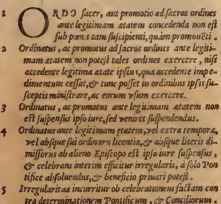 ORDO sacer, aut promotio ad sacros ordines
ante legitimam ætatem concedenda non est
sub pœna tam suscipienti, quàm promouēti.
1
2 Ordinatus, ac promotus ad sacros ordines ante legiti-
mam ætatem non potest tales ordines exercere, nisi
accedente legitima ætate ipsius, qua accedente impe-
dimentum cessat, & tunc posset in ordinibus ipsis su-
sceptis ministrare, ac eorum vsum exercere.
3 Ordinatus, ac promotus ante legitimam ætatem non
est suspensus ipso iure, sed venires suspendendus.
4 Ordinatus ante legitimam ætatem, vel extra tempora,
vel absque sui ordinern licentia, & absque literis di-
missorijs ab alieno Episcopo est ipso iure suspensus,
& celebrans interim efficitur irregularis, à solo Pon
tifice absoluendus, & beneficio priuari potest.
5 Irregularitas incurritur ob celebrationem factam con
tra determinationem Pontificum, & Conciliorum.